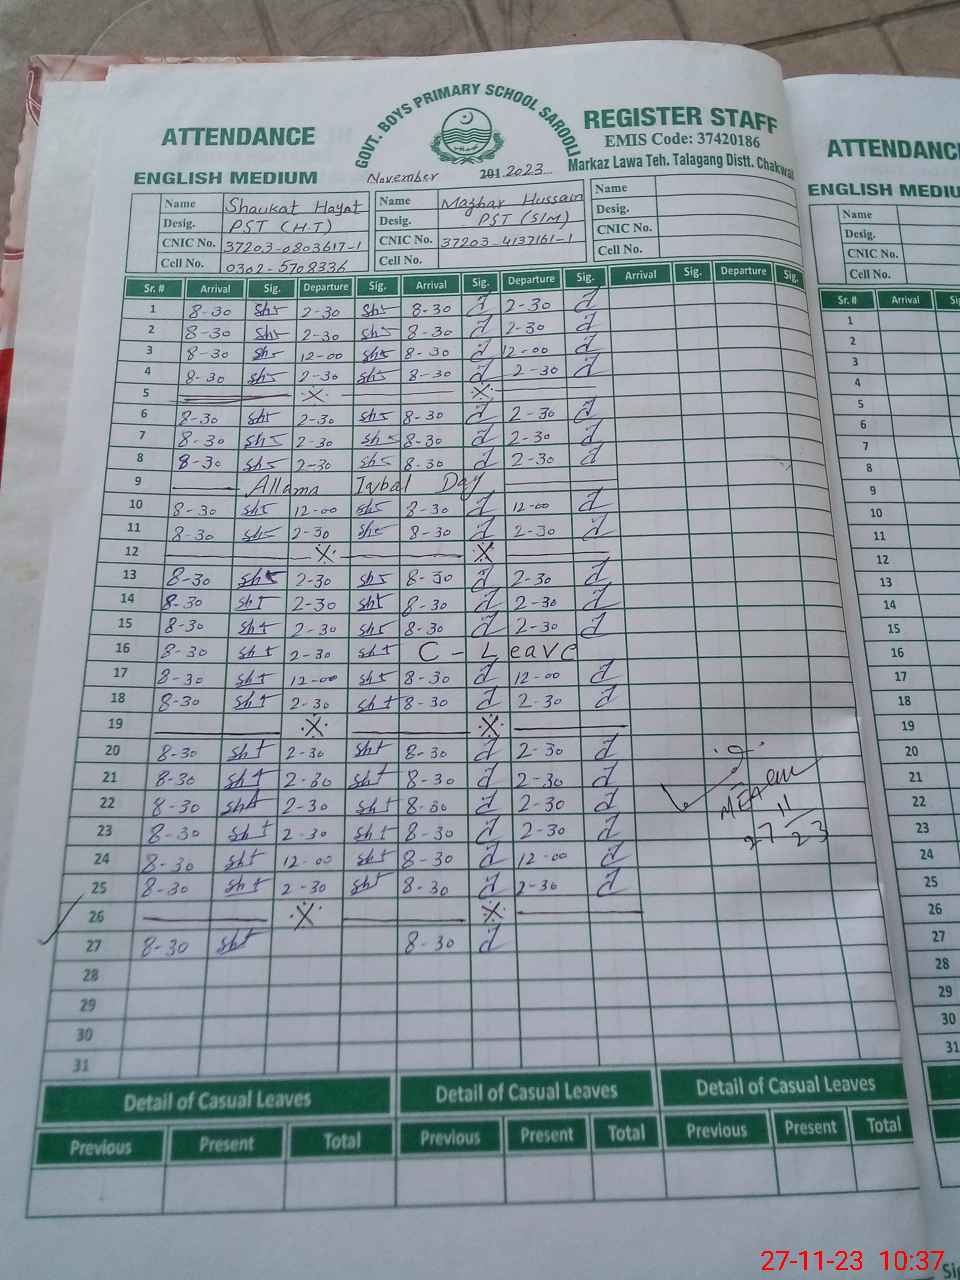 GOVT. BOYS PRIMARY SCHOOL SAROOLI
ATTENDANCE REGISTER STAFF
EMIS Code: 37420186
ENGLISH MEDIUM Markaz Lawa Teh. Talagang Distt. Chakwal
November 201 2023
Name Shaukat Hayat Name Mazhar Hussain Name
Desig. PST (H.T) Desig. PST (SIM) Desig.
CNIC No. 37203-0803617-1 CNIC No. 37203-4137161-1 CNIC No.
Cell No. 0302-5708336 Cell No. Cell No.
Sr. # Arrival Sig. Departure Sig. Arrival Sig. Departure Sig. Arrival Sig. Departure Sig.
1 8-30 2-30 8-30 2-30
2 8-30 2-30 8-30 2-30
3 8-30 12-00 8-30 12-00
4 8-30 2-30 8-30 2-30
5
6 8-30 2-30 8-30 2-30
7 8-30 2-30 8-30 2-30
8 8-30 2-30 8-30 2-30
9 Allama Iqbal Day
10 8-30 12-00 8-30 12-00
11 8-30 2-30 8-30 2-30
12
13 8-30 2-30 8-30 2-30
14 8-30 2-30 8-30 2-30
15 8-30 2-30 8-30 2-30
16 8-30 2-30 C-Leave
17 8-30 12-00 8-30 12-00
18 8-30 2-30 8-30 2-30
19
20 8-30 2-30 8-30 2-30
21 8-30 2-30 8-30 2-30
22 8-30 2-30 8-30 2-30
23 8-30 2-30 8-30 2-30
24 8-30 12-00 8-30 12-00
25 8-30 2-30 8-30 2-30
26
27 8-30 8-30
28
29
30
31
MEA
27 11 23
Detail of Casual Leaves Detail of Casual Leaves Detail of Casual Leaves
Previous Present Total Previous Present Total Previous Present Total
ATTENDANC
ENGLISH MEDIU
Name
Desig.
CNIC No.
Cell No.
Sr. # Arrival
1
2
3
4
5
6
7
8
9
10
11
12
13
14
15
16
17
18
19
20
21
22
23
24
25
26
27
28
29
30
31
27-11-23 10:37